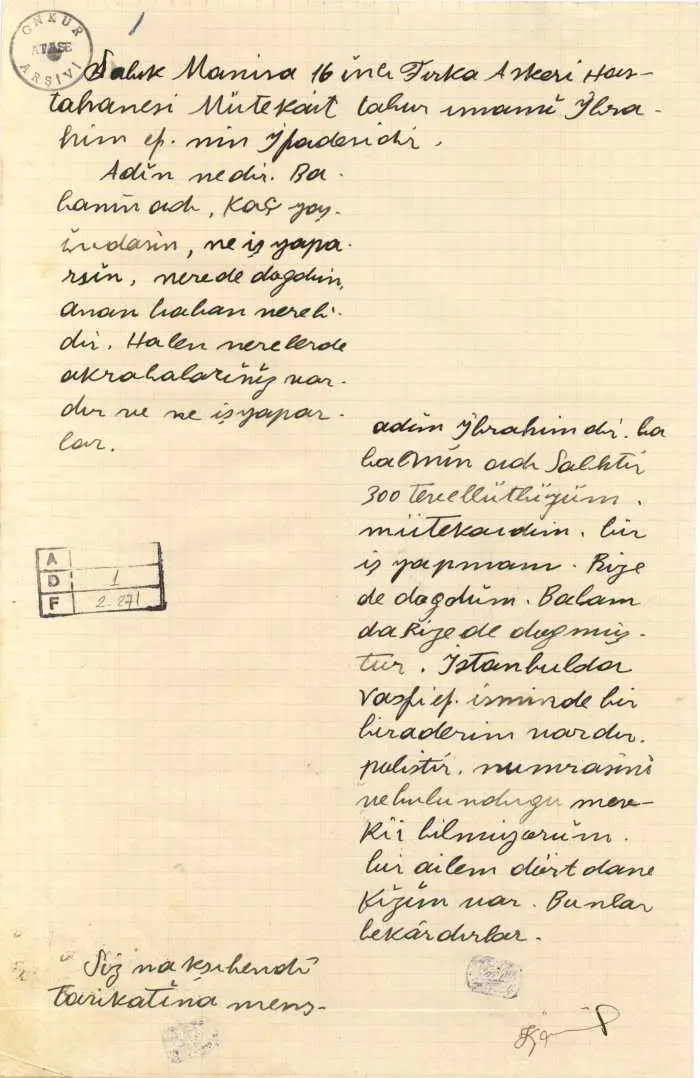 GNKUR
ATASE
ARŞİVİ
Sabık Manisa 16 ıncı Fırka Askeri Has-
tahanesi Mütekait tabur imamı İbra-
him ef. nin İfadesidir.
Adın nedir. Ba-
banın adı, Kaç yaş-
ındasın, ne iş yapa-
rsın, nerede doğdun,
anan baban nereli-
dir. Halen nerelerde
akrabalarınız var-
dır ve ne iş yapar-
lar.
adım İbrahimdir. ba
babamın adı Salihtir
300 tevellütlüyüm.
mütekaidim. bir
iş yapmam. Rize
de doğdum. Babam
da Rizede doğmuş-
tur. İstanbulda
Vasfi ef. isminde bir
biraderim vardır.
polistir. numrasını
ve bulunduğu mev-
kii bilmiyorum.
bir ailem dört dane
kızım var. Bunlar
bekârdırlar.
A
D 1
F 2-271
Siz nakşıbendi
tarikatına mens-